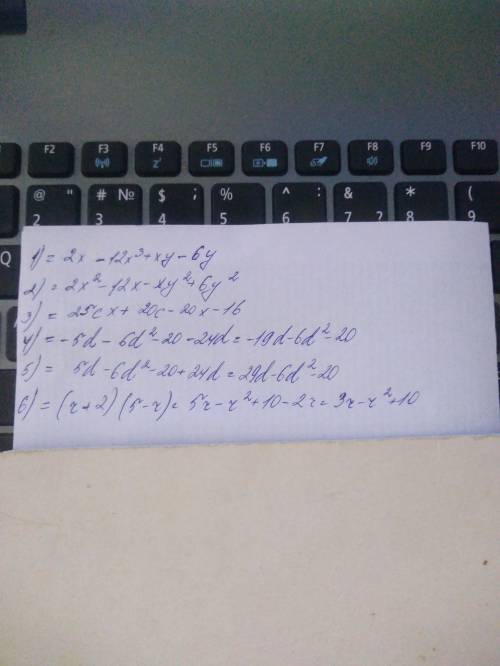 F2 F3 F4 F5 F6 F7 F8 F9 F10
@ " # № $ ; % ^ : & ? * (
2 3 4 5 6 7 7 8 9
Q
1) = 2x - 12x³ + xy - 6y
2) = 2x² - 12x - xy² + 6y²
3) = 25cx + 20c - 20x - 16
4) = -5d - 6d² - 20 - 24d = -19d - 6d² - 20
5) = 5d - 6d² - 20 + 24d = 29d - 6d² - 20
6) = (r + 2)(5 - r) = 5r - r² + 10 - 2r = 3r - r² + 10